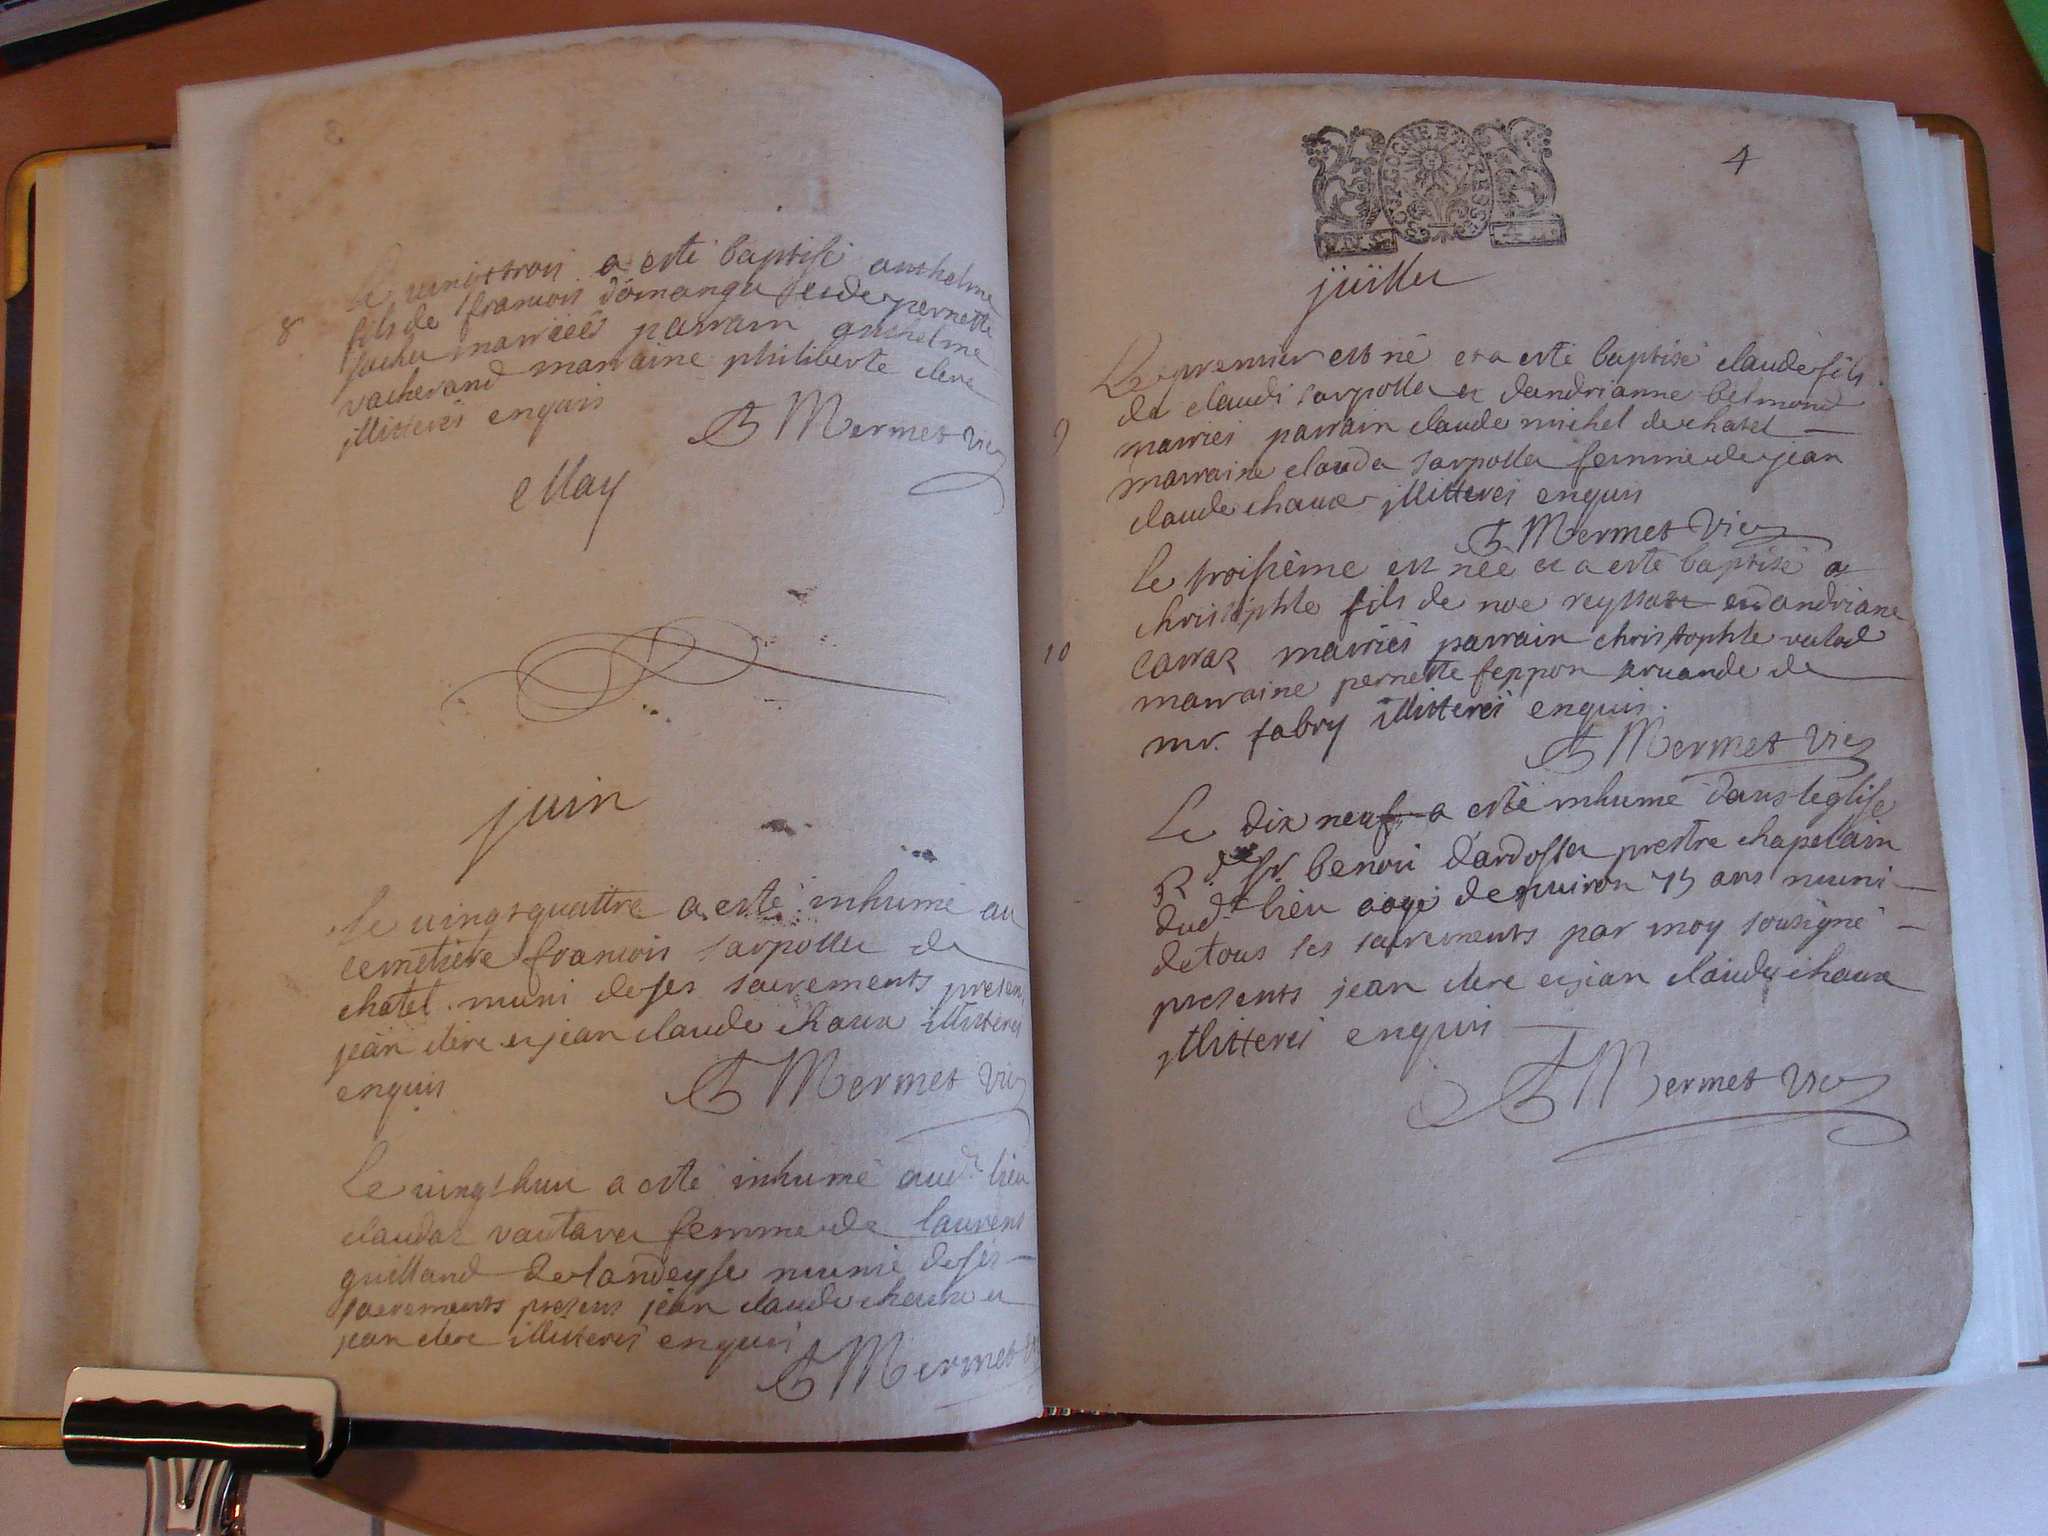 3
8
Le vintttrois a esté baptisé anthelme
fils de francois domange et de pernette
mariés parrain anthelme
vacherand marraine philiberte clere
illitterés enquis
Mermet Vic
May
juin
Le vingt quattre a esté inhumé au
cemetiere francois sarpollet de
chatel muni de ses sacrements presen
jean clere et jean claude chaux illitterés
enquis
Mermet Vic
Le vingt huit a esté inhumé aud. lieu
claudaz femme de laurens
guilland de landeyse munie de ses
sacrements presens jean claude chaux et
jean clere illitterés enquis
Mermet
4
BOURGOGNE ET BRESSE
juillet
9
Le premier est né et a esté baptisé claude fils
de claude sarpollet et dandrianne belmond
marriés parrain claude michel de chatel
marraine clauda sarpollet femme de jean
claude chaux illitterés enquis
Mermet Vic
10
le troisième est née et a esté baptisé a
christophle fils de noe et dandriane
carraz marriés parrain christophle
marraine pernette feppon servande de
mr. fabry illitterés enquis.
Mermet Vic
Le dix neuf a esté inhumé dans leglise
Rd. Sr. benoit dardosset prestre chapellain
dud. lieu aagé denviron 75 ans muni
de tous ses sacrements par moy sousigné
presents jean clere et jean claude chaux
illitterés enquis
Mermet Vic